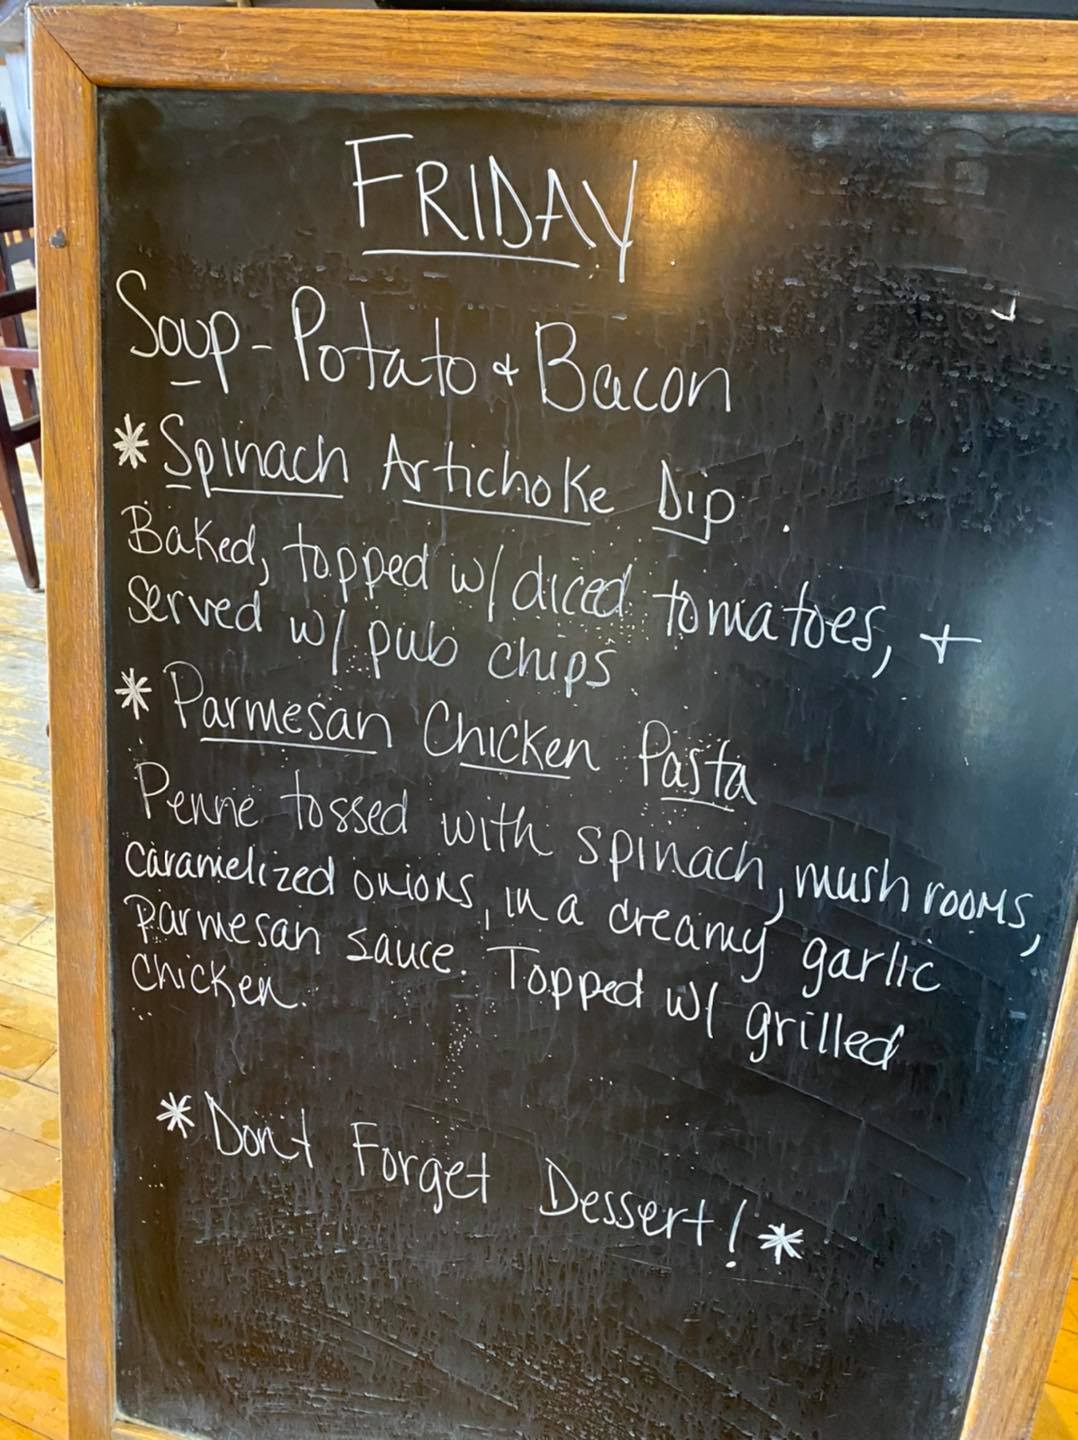 FRIDAY
Soup - Potato + Bacon
* Spinach Artichoke Dip
Baked, topped w/ diced tomatoes, +
served w/ pub chips
* Parmesan Chicken Pasta
Penne tossed with spinach, mushrooms,
caramelized onions, in a creamy garlic
parmesan sauce. Topped w/ grilled
chicken.
* Don't Forget Dessert! *